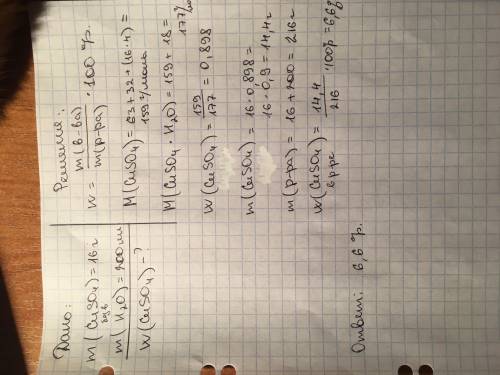 Дано:
m(CuSO₄) = 16 г
m(H₂O) = 200 мл
W(CuSO₄) - ?
Решение:
W = m(в-ва) / m(р-ра) · 100 %.
M(CuSO₄) = 63 + 32 + (16 · 4) =
159 г/моль
M(CuSO₄ · H₂O) = 159 + 18 =
177
W(CuSO₄) = 159 / 177 = 0,898
m(CuSO₄) = 16 · 0,898 =
16 · 0,9 = 14,4 г
m(р-ра) = 16 + 200 = 216 г
W(CuSO₄) в р-ре = 14,4 / 216 · 100% = 6,6%
Ответ: 6,6 %.